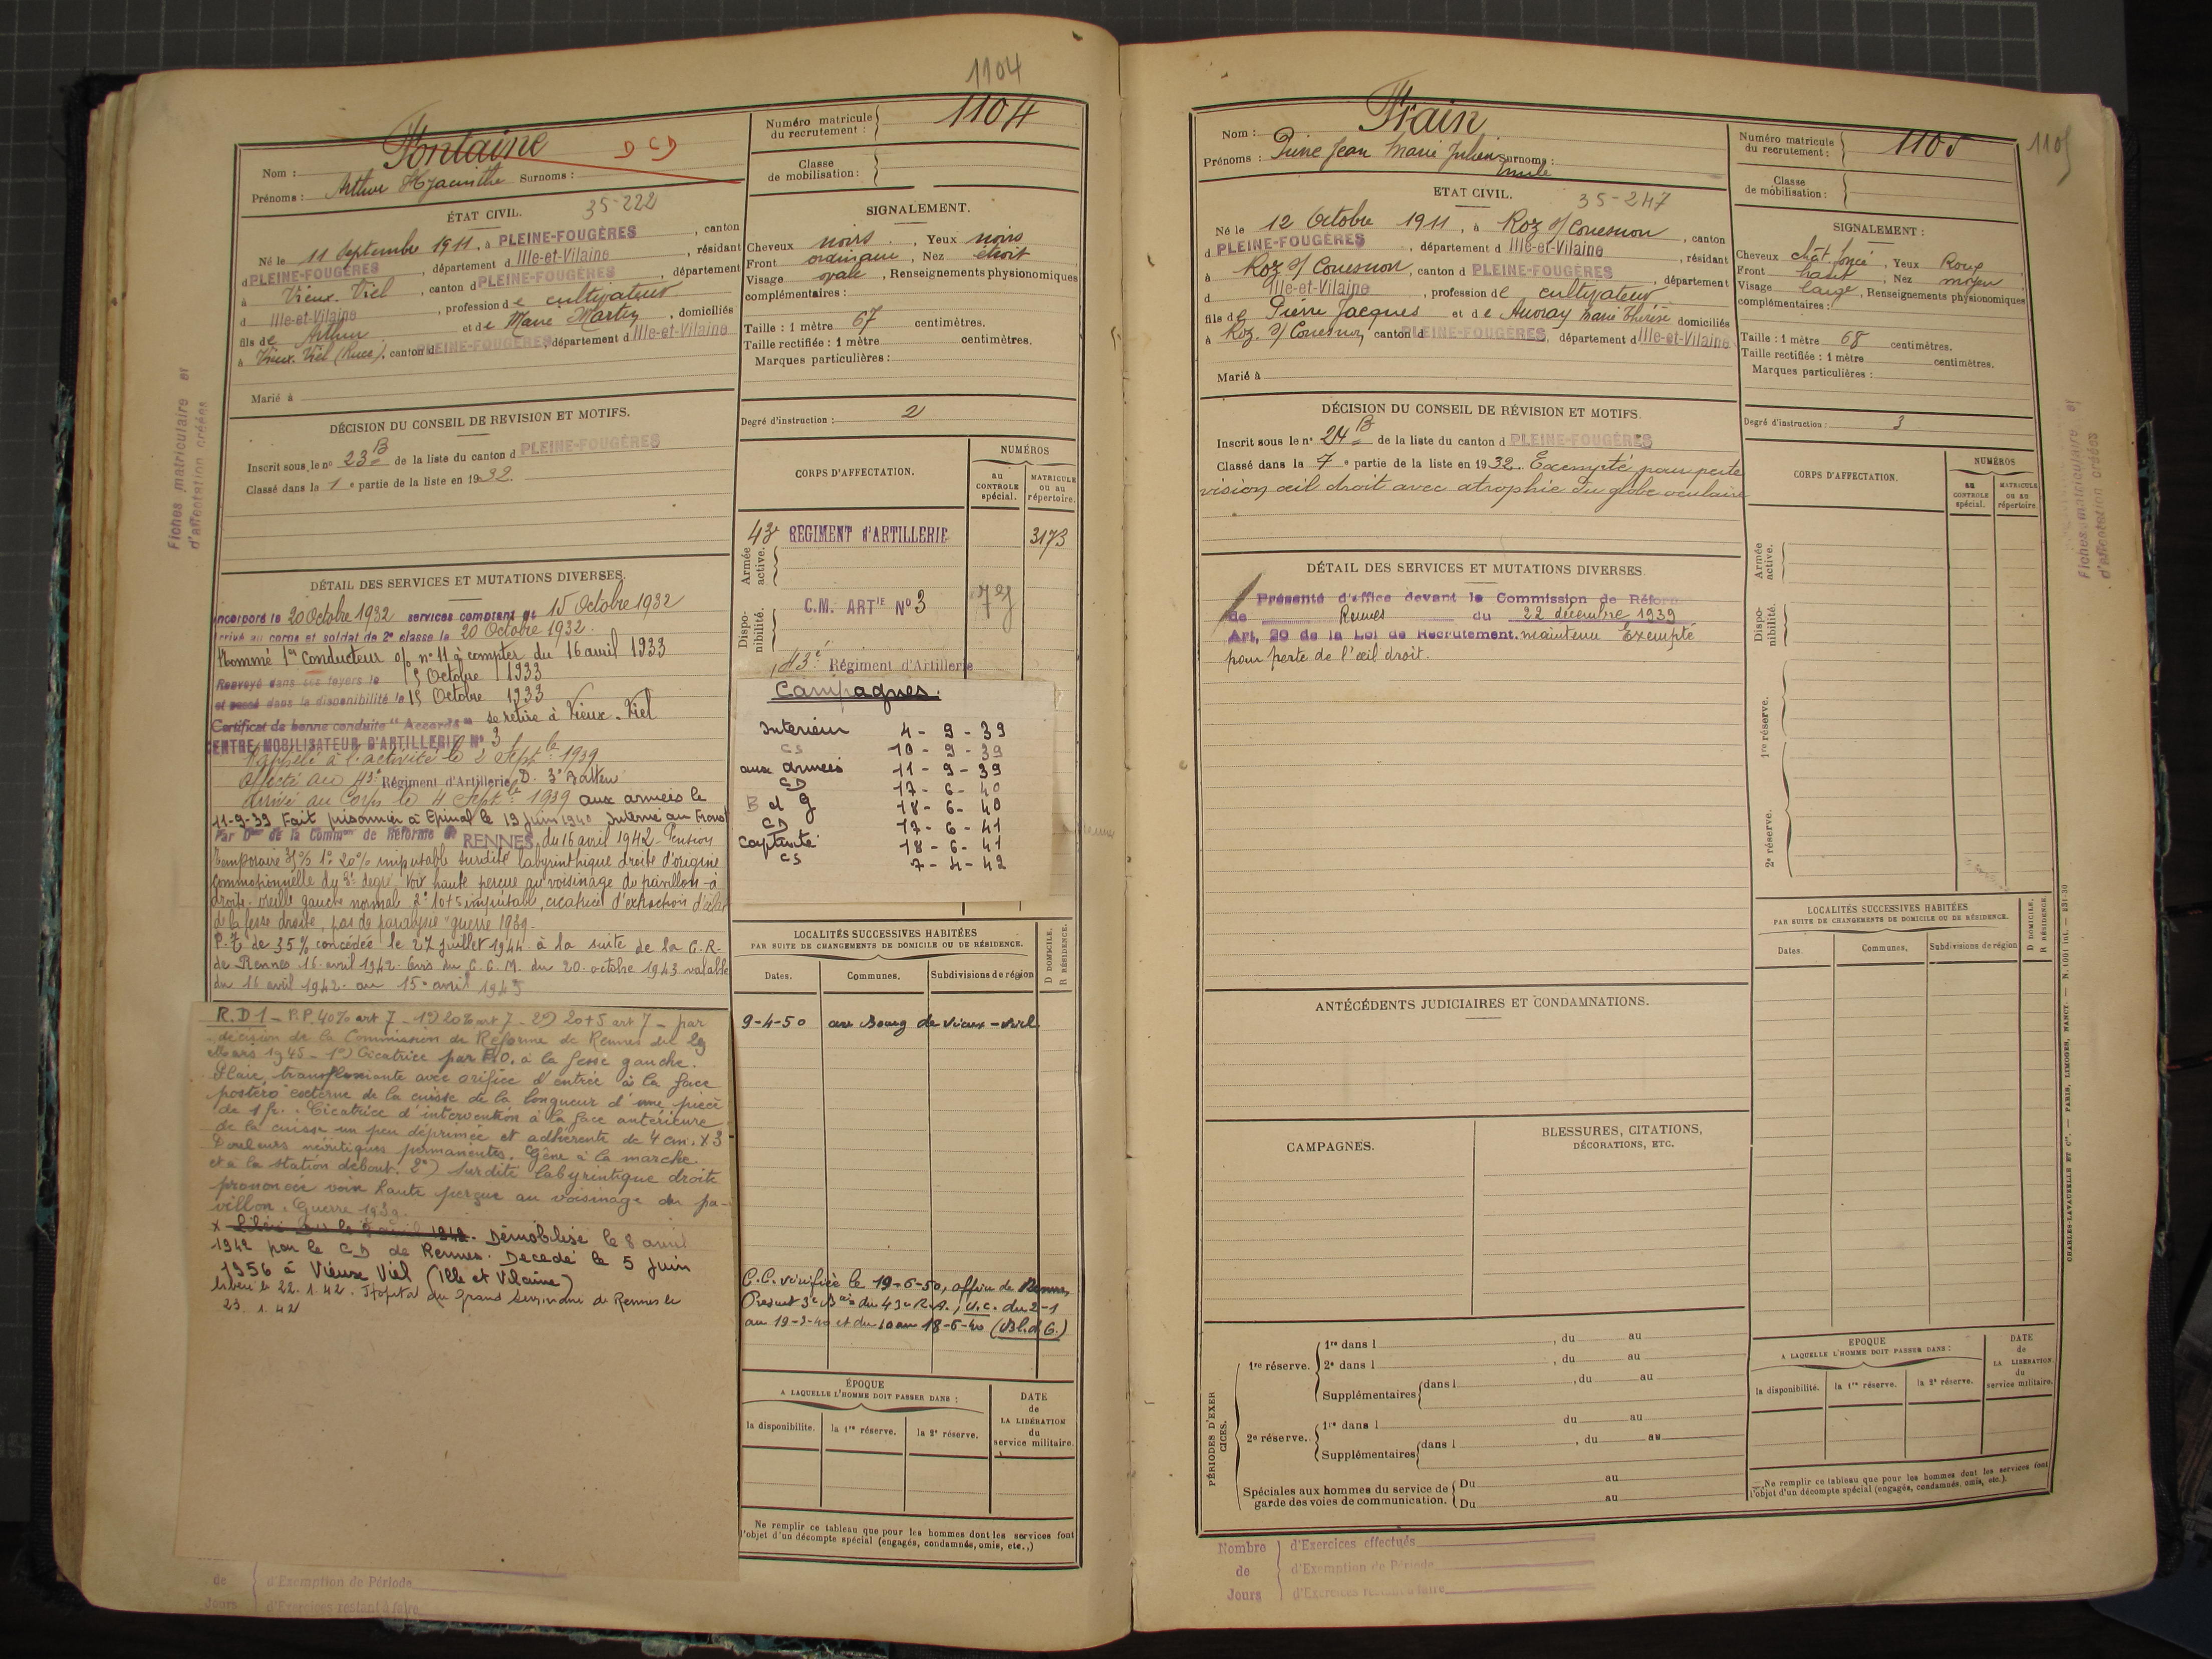 1104
Nom : Fontaine DCD
Prénoms : Arthur Hyacinthe Surnoms :
Numéro matricule du recrutement : 1104
Classe de mobilisation :
ÉTAT CIVIL. 35-222
Né le 11 Septembre 1911, à PLEINE-FOUGÈRES, canton
d PLEINE-FOUGÈRES, département d Ille-et-Vilaine, résidant
à Vieux-Viel, canton d PLEINE-FOUGÈRES, département
d Ille-et-Vilaine, profession de cultivateur
fils de Arthur et de Marie Martin, domiciliés
à Vieux-Viel (Rues), canton d PLEINE-FOUGÈRES, département d Ille-et-Vilaine
Marié à
SIGNALEMENT.
Cheveux noirs, Yeux noirs
Front ordinaire, Nez étroit
Visage ovale, Renseignements physionomiques
complémentaires :
Taille : 1 mètre 67 centimètres.
Taille rectifiée : 1 mètre centimètres.
Marques particulières :
Degré d'instruction : 2
DÉCISION DU CONSEIL DE REVISION ET MOTIFS.
Inscrit sous le n° 23 B de la liste du canton d PLEINE-FOUGÈRES
Classé dans la 1e partie de la liste en 1932.
Fiches matriculaire et
d'affectation créées
DÉTAIL DES SERVICES ET MUTATIONS DIVERSES.
Incorporé le 20 Octobre 1932 services comptant du 15 Octobre 1932
Arrivé au corps et soldat de 2e classe le 20 Octobre 1932.
Nommé 1er Conducteur o/ n° 11 à compter du 16 avril 1933
Renvoyé dans ses foyers le 15 Octobre 1933
et passé dans la disponibilité le 15 Octobre 1933
Certificat de bonne conduite "Accordé" se retire à Vieux-Viel
CENTRE MOBILISATEUR D'ARTILLERIE N° 3
Rappelé à l'activité le 2 Septbre 1939
Affecté au 43e Régiment d'Artillerie D. 3e Batterie
Arrivé au Corps le 4 Septbre 1939 aux armées le
11-9-39 Fait prisonnier à Epinal le 19 juin 1940 Interné au
Par Don de la Common de Réforme de RENNES du 16 avril 1942 - Pension
temporaire 35% 1° 20% imputable surdité labyrinthique droite d'origine
commotionnelle du 3e degré. Voix haute perçue au voisinage du pavillon à
droite - oreille gauche normal. 2° 10+5 imputable, cicatrice d'extraction d'éclat
de la fesse droite, pas de paralysie "guerre 1939-
P.T. de 35% concédée le 27 juillet 1944 à la suite de la C.R.
de Rennes 16 avril 1942. Avis du C.C.M. du 20 octobre 1943 valable
du 16 avril 1942 au 15 avril 1945
R.D1 - P.P. 40% art 7 - 1°) 20% art 7 - 2°) 20+5 art 7 - par
décision de la Commission de Réforme de Rennes du 29
Mars 1945 - 1°) Cicatrice par P.O. à la fesse gauche.
Plaie transfixiante avec orifice d'entrée à la face
postéro externe de la cuisse de la longueur d'une pièce
de 1 fr. Cicatrice d'intervention à la face antérieure
de la cuisse un peu déprimée et adhérente de 4 cm. X 3
Douleurs névritiques permanentes. Gêne à la marche
et à la station debout. 2°) Surdité labyrinthique droite
prononcée voix haute perçue au voisinage du pa-
villon. Guerre 1939.
x Démobilisé le 8 avril
1942 par le CD de Rennes. Decedé le 5 juin
1956 à Vieux Viel (Ille et Vilaine)
libéré le 22.1.42. Hopital du Grand Seminaire de Rennes le
23.1.42
CORPS D'AFFECTATION.
NUMÉROS
au CONTROLE spécial.
MATRICULE ou au répertoire.
Armée active.
43e RÉGIMENT D'ARTILLERIE 3173
Dispo-nibilité.
C.M. ARTIE N° 3
43e Régiment d'Artillerie
Campagnes.
Interieur 4 - 9 - 39
CS 10 - 9 - 39
aux armées 11 - 9 - 39
CD 17 - 6 - 40
B d g 18 - 6 - 40
CD 17 - 6 - 41
Captivité 18 - 6 - 41
CS 7 - 4 - 42
LOCALITÉS SUCCESSIVES HABITÉES
PAR SUITE DE CHANGEMENTS DE DOMICILE OU DE RÉSIDENCE.
Dates. Communes. Subdivisions de région
D DOMICILE. R RÉSIDENCE.
9-4-50 au Bourg de Vieux-Viel
C.C. vérifiée le 19-6-50, affon de Rennes
Présent 3e Bie du 43e R.A., U.C. du 2-1
au 19-3-40 et du 10 au 18-6-40 (Bl. d G.)
ÉPOQUE
A LAQUELLE L'HOMME DOIT PASSER DANS :
la disponibilité. la 1re réserve. la 2e réserve.
DATE de LA LIBÉRATION du service militaire.
Ne remplir ce tableau que pour les hommes dont les services font
l'objet d'un décompte spécial (engagés, condamnés, omis, etc.,)
de
Jours
d'Exemption de Période
d'Exercices restant à faire
1105
Nom : Frain
Prénoms : Pierre Jean Marie Julien Emile Surnoms :
Numéro matricule du recrutement : 1105
Classe de mobilisation :
ETAT CIVIL. 35-247
Né le 12 Octobre 1911, à Roz s/ Couesnon, canton
d PLEINE-FOUGÈRES, département d Ille-et-Vilaine, résidant
à Roz s/ Couesnon, canton d PLEINE-FOUGÈRES, département
d Ille-et-Vilaine, profession de cultivateur
fils de Pierre Jacques et de Auvray Marie Thérèse domiciliés
à Roz s/ Couesnon, canton d PLEINE-FOUGÈRES, département d Ille-et-Vilaine
Marié à
SIGNALEMENT :
Cheveux chât. foncé, Yeux Roux
Front haut, Nez moyen
Visage large, Renseignements physionomiques
complémentaires :
Taille : 1 mètre 68 centimètres.
Taille rectifiée : 1 mètre centimètres.
Marques particulières :
Degré d'instruction : 3
DÉCISION DU CONSEIL DE RÉVISION ET MOTIFS
Inscrit sous le n° 24 B de la liste du canton d PLEINE-FOUGÈRES
Classé dans la 7e partie de la liste en 1932. Exempté pour perte
vision œil droit avec atrophie du globe oculaire
DÉTAIL DES SERVICES ET MUTATIONS DIVERSES.
Présenté d'office devant la Commission de Réform
de Rennes du 22 décembre 1939
Art, 20 de la Loi de Recrutement. maintenu Exempté
pour perte de l'œil droit.
ANTÉCÉDENTS JUDICIAIRES ET CONDAMNATIONS.
CAMPAGNES.
BLESSURES, CITATIONS,
DÉCORATIONS, ETC.
PÉRIODES D'EXERCICES.
1re réserve.
1re dans l , du au
2e dans l , du au
Supplémentaires dans l , du au
2e réserve.
1re dans l du au
Supplémentaires dans l , du au
Spéciales aux hommes du service de
garde des voies de communication.
Du au
Du au
CORPS D'AFFECTATION.
NUMÉROS
au CONTROLE spécial.
MATRICULE ou au répertoire.
Armée active.
Dispo-nibilité.
1re réserve.
2e réserve.
LOCALITÉS SUCCESSIVES HABITÉES
PAR SUITE DE CHANGEMENTS DE DOMICILE OU DE RÉSIDENCE.
Dates. Communes. Subdivisions de région
D DOMICILE. R RÉSIDENCE.
EPOQUE
A LAQUELLE L'HOMME DOIT PASSER DANS :
la disponibilité. la 1re réserve. la 2e réserve.
DATE de LA LIBERATION du service militaire.
Ne remplir ce tableau que pour les hommes dont les services font
l'objet d'un décompte spécial (engagés, condamnés, omis, etc.).
Fiches matriculaire et
d'affectation créées
CHARLES-LAVAUZELLE ET Cie. — PARIS, LIMOGES, NANCY.
Nombre de Jours
d'Exercices effectués
d'Exemption de Période
d'Exercices restant à faire